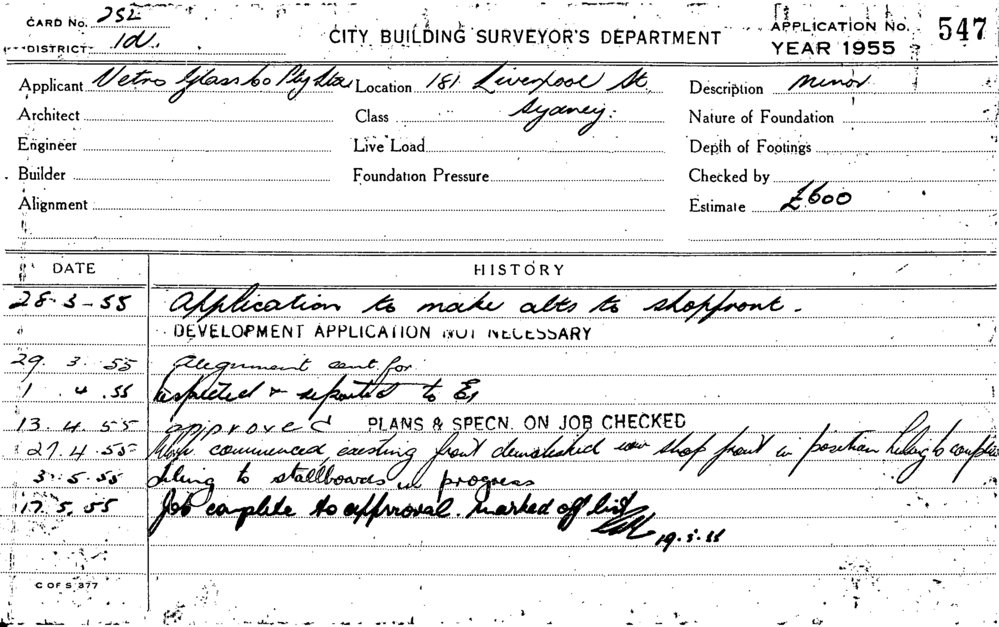 CARD No. 252
DISTRICT 1d.
CITY BUILDING SURVEYOR'S DEPARTMENT
APPLICATION No. 547
YEAR 1955
Applicant Vetro Glass Co Pty Ltd Location 181 Liverpool St, Description Minor
Architect Class Sydney. Nature of Foundation
Engineer Live Load Depth of Footings
Builder Foundation Pressure Checked by
Alignment Estimate £600
DATE HISTORY
28-3-55 Application to make alts to shopfront.
DEVELOPMENT APPLICATION NOT NECESSARY
29.3.55 Alignment sent for
1.4.55 Inspected & reported to
13.4.55 approved PLANS & SPECN. ON JOB CHECKED
27.4.55 Work commenced, existing front demolished new shop front in position
3.5.55 Tiling to stallboards in progress
17.5.55 Job complete to approval. Marked off list
19.5.55
C OF S 377